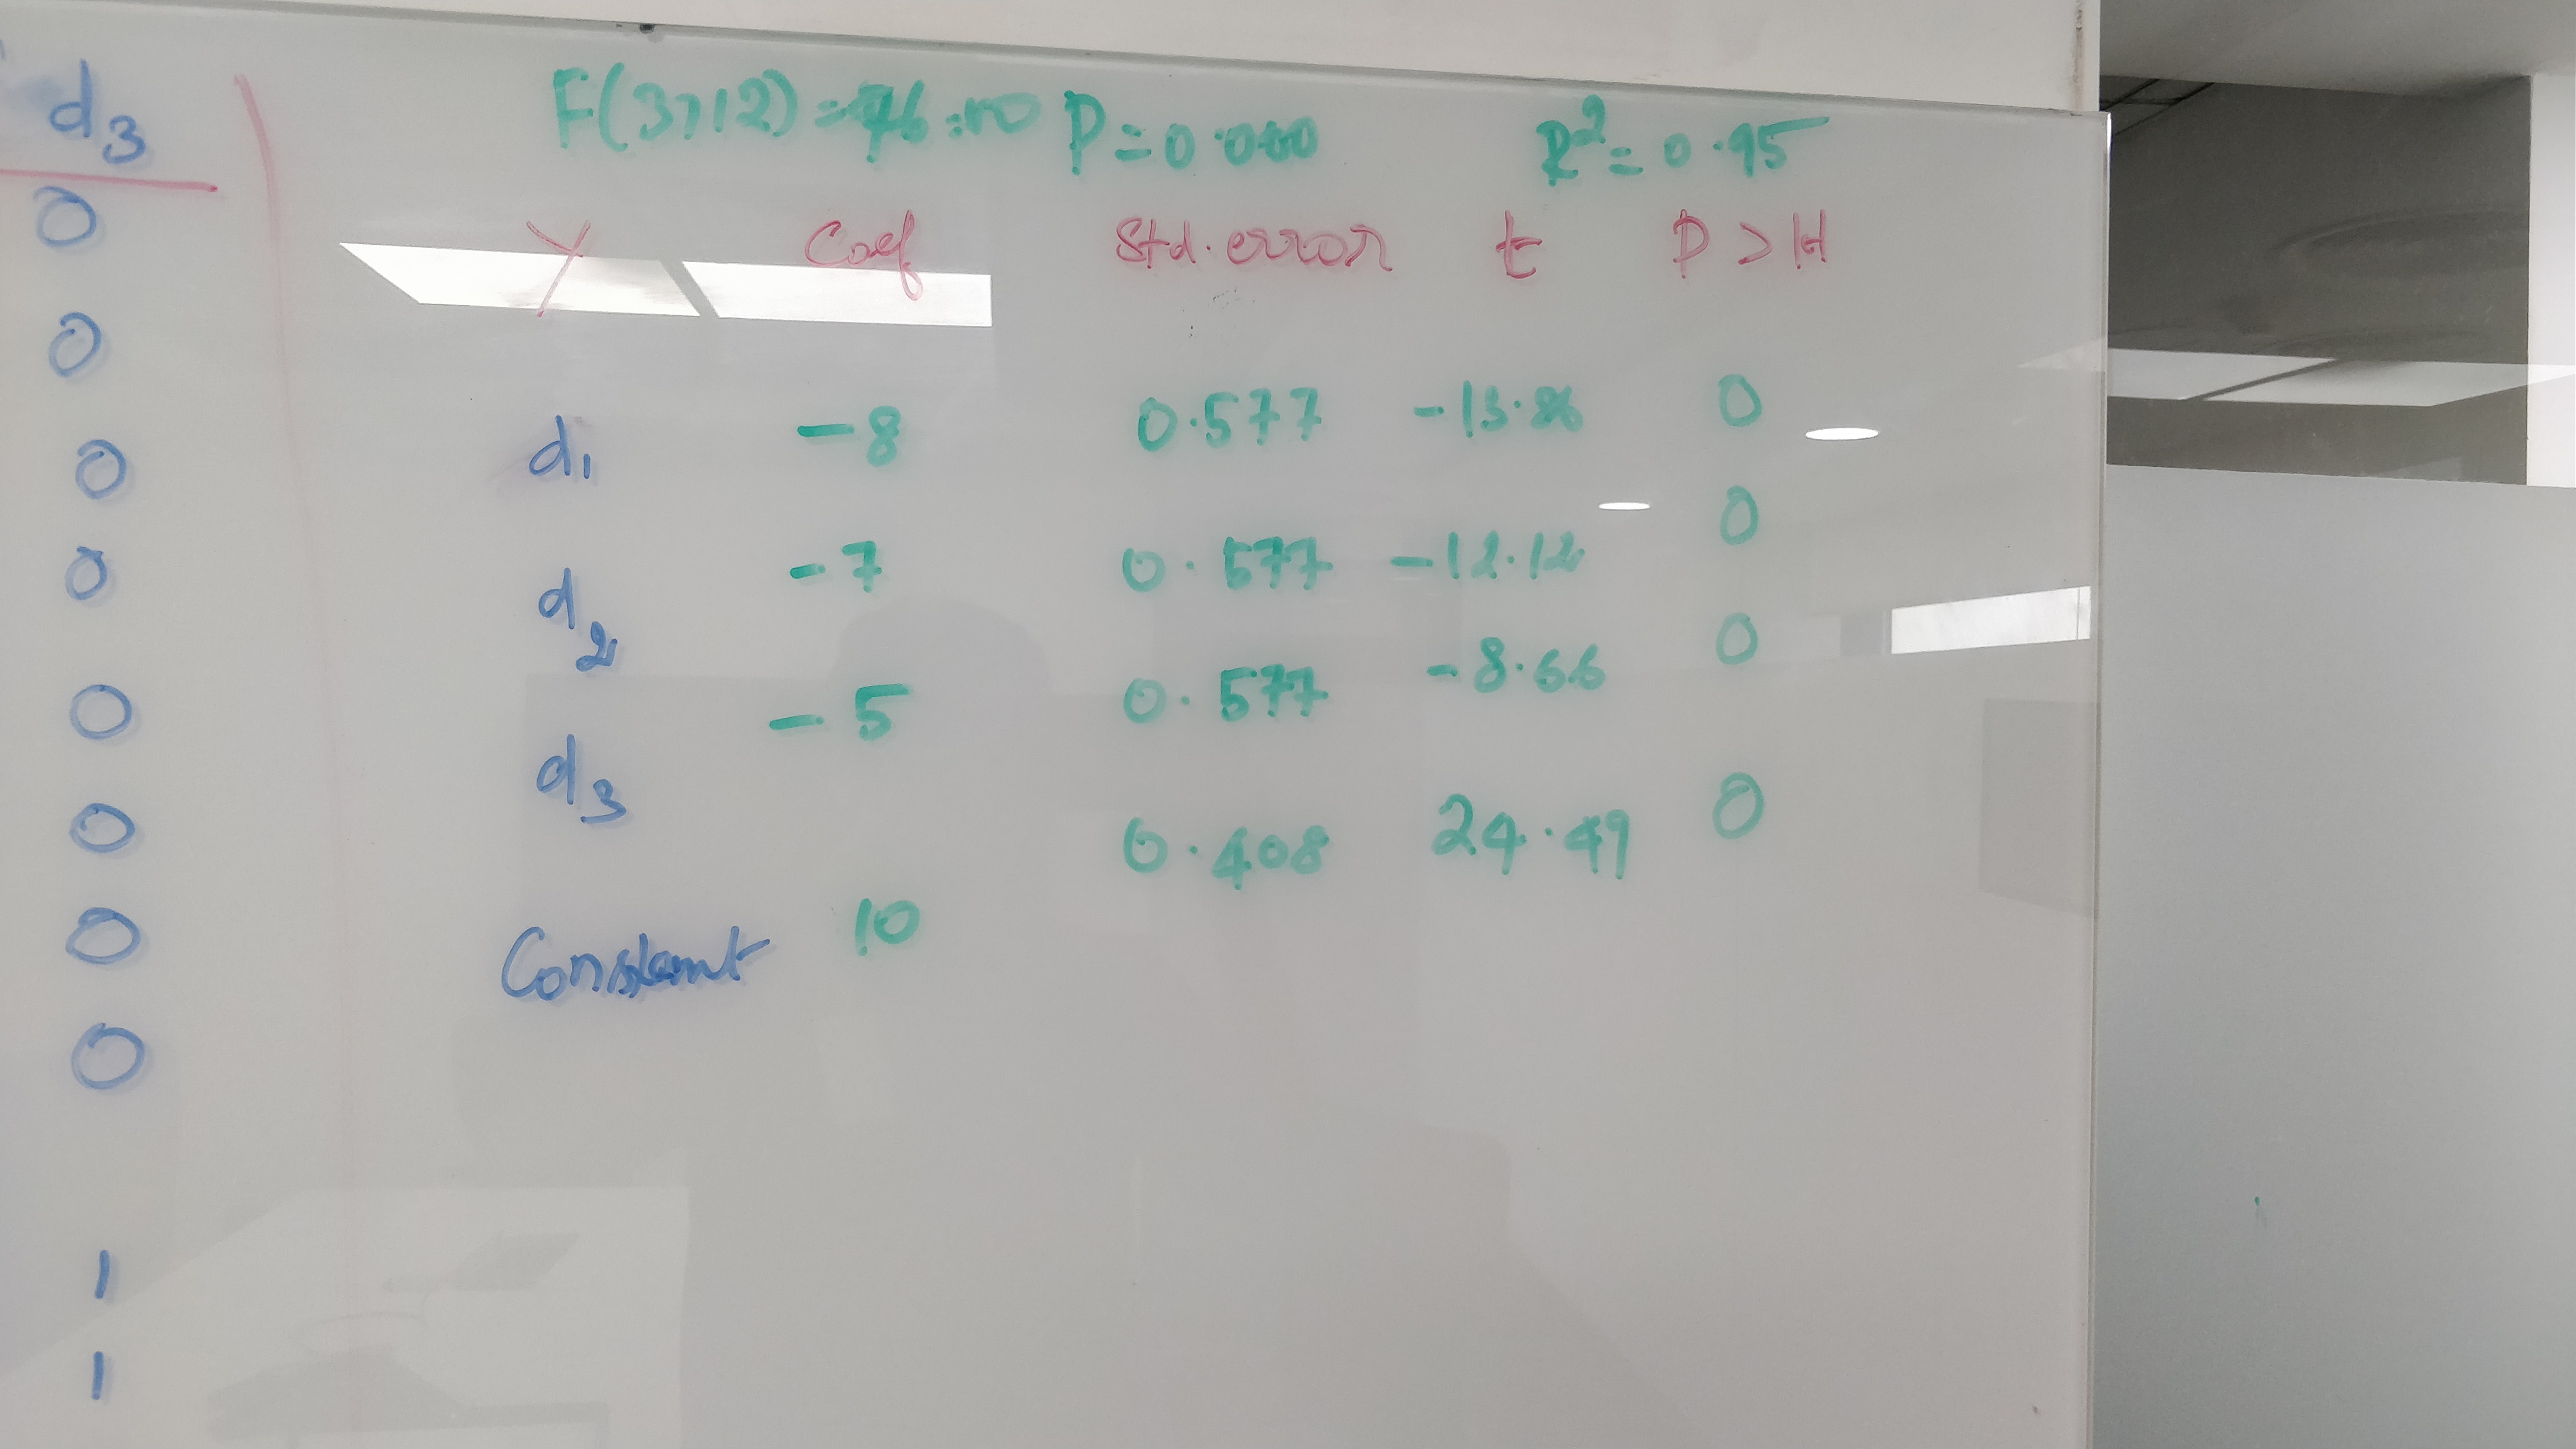 d3
0
0
0
0
0
0
0
0
1
1
F(3,12) = 76.00 P = 0.000 R² = 0.95
Y Coef Std. error t P > |t|
d1 -8 0.577 -13.86 0
d2 -7 0.577 -12.12 0
d3 -5 0.577 -8.66 0
Constant 10 0.408 24.49 0